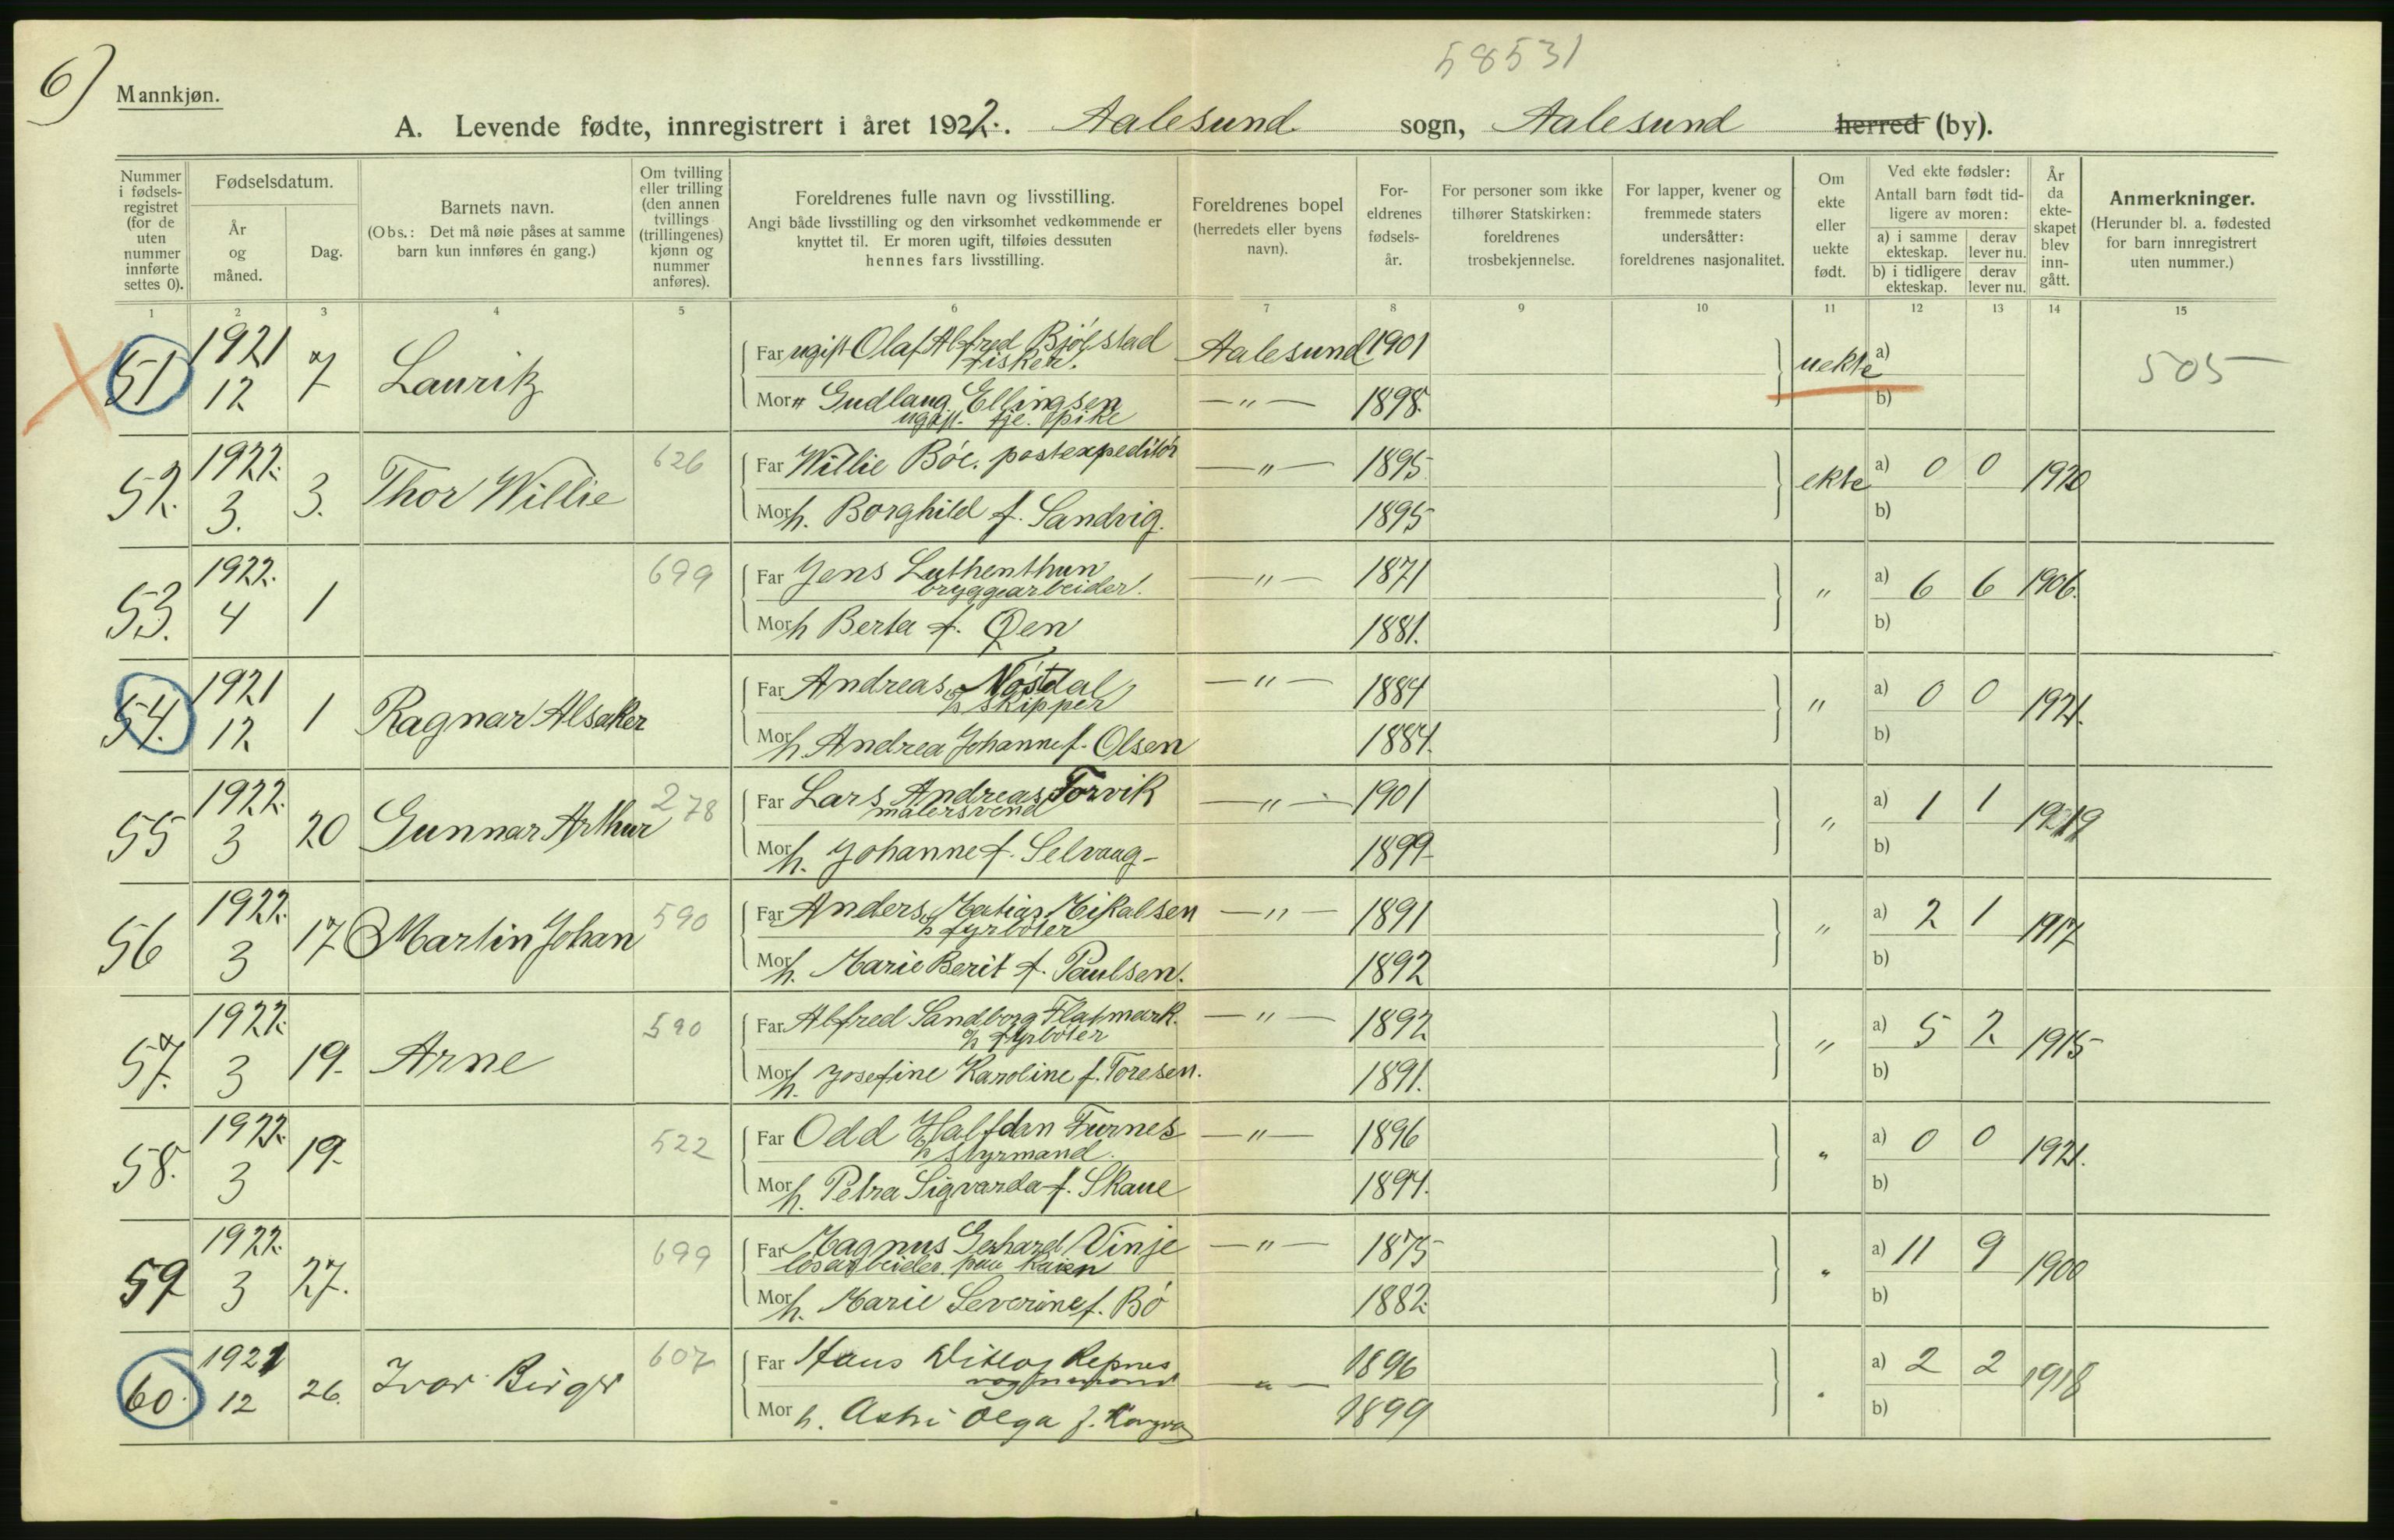 58531
6)
Mannkjøn.
A. Levende fødte, innregistrert i året 1922. Aalesund sogn, Aalesund herred (by).
Nummer i fødsels-registret (for de uten nummer innførte settes 0).
Fødselsdatum.
År og måned.
Dag.
Barnets navn.
(Obs.: Det må nøie påses at samme barn kun innføres én gang.)
Om tvilling eller trilling (den annen tvillings (trillingenes) kjønn og nummer anføres).
Foreldrenes fulle navn og livsstilling.
Angi både livsstilling og den virksomhet vedkommende er knyttet til. Er moren ugift, tilføies dessuten hennes fars livsstilling.
Foreldrenes bopel (herredets eller byens navn).
For-eldrenes fødsels-år.
For personer som ikke tilhører Statskirken: foreldrenes trosbekjennelse.
For lapper, kvener og fremmede staters undersåtter: foreldrenes nasjonalitet.
Om ekte eller uekte født.
Ved ekte fødsler:
Antall barn født tid-ligere av moren:
a) i samme ekteskap. derav lever nu.
b) i tidligere ekteskap. derav lever nu.
År da ekte-skapet blev inn-gått.
Anmerkninger.
(Herunder bl. a. fødested for barn innregistrert uten nummer.)
1 2 3 4 5 6 7 8 9 10 11 12 13 14 15
51 1921 12 7 Lauritz Far ugift Olaf Alfred Bjølstad Aalesund 1901 uekte a) 505
fisker.
Mor " Gudlaug Ellingsen —"— 1898. b)
ugift. tje. pike
52. 1922. 3. 3. Thor Willie 626 Far Willie Böe. postexpeditör —"— 1895 ekte a) 0 0 1920
Mor h. Borghild f. Sandvig. 1895 b)
53. 1922. 4 1 699 Far Jens Luthenthun —"— 1871 " a) 6 6 1906.
bryggearbeider.
Mor h Berta f. Øen 1881. b)
54. 1921 12 1 Ragnar Alsaker Far Andreas Nöstdal —"— 1884 " a) 0 0 1921.
skipper
Mor h. Andrea Johanne f. Olsen 1884. b)
55 1922. 3 20 Gunnar Arthur 278 Far Lars Andreas Torvik —"— 1901 " a) 1 1 1919
malersvend
Mor h. Johanne f. Selvaag 1899 b)
56 1922. 3 17 Martin Johan 590 Far Anders Matias Mikalsen —"— 1891 " a) 2 1 1917
fyrböter
Mor h. Marie Berit f. Paulsen. 1892 b)
57. 1922. 3 19. Arne 590 Far Alfred Sandborg Flatmark. —"— 1892 " a) 5 2 1915
fyrböter
Mor h. Josefine Karoline f. Toresen. 1891. b)
58. 1922. 3 19. 522 Far Odd Halfdan Furnes —"— 1896 " a) 0 0 1921.
styrmand.
Mor h. Petra Sigvarda f. Skaue 1894. b)
59 1922. 3 27. 699 Far Magnus Gerhard Vinje —"— 1875 " a) 11 9 1900
lösarbeider paa kaien
Mor h. Marie Severine f. Bö 1882. b)
60. 1921 12 26. Ivar Birger 607 Far Hans Ditlof Repnes —"— 1896 " a) 2 2 1918
Mor h. Astri Olga f. 1899 b)